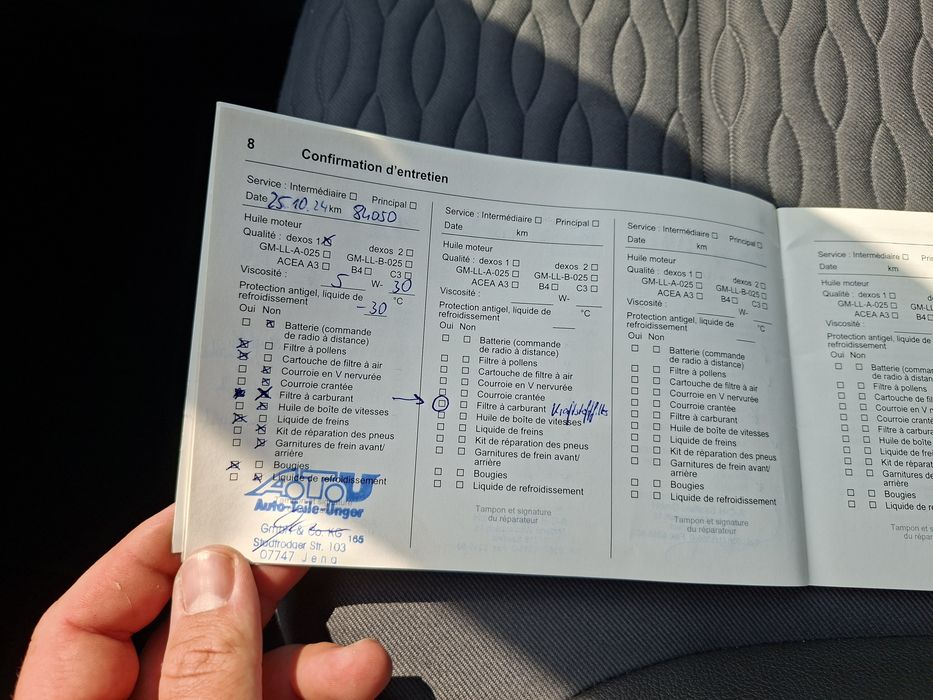 8
Confirmation d'entretien
Service : Intermédiaire Principal
Date 25.10.24 km 84050
Huile moteur
Qualité : dexos 1 dexos 2
GM-LL-A-025 GM-LL-B-025
ACEA A3 B4 C3
Viscosité : 5 W- 30
Protection antigel, liquide de
refroidissement -30 °C
Oui Non
Batterie (commande
de radio à distance)
Filtre à pollens
Cartouche de filtre à air
Courroie en V nervurée
Courroie crantée
Filtre à carburant
Huile de boîte de vitesses
Liquide de freins
Kit de réparation des pneus
Garnitures de frein avant/
arrière
Bougies
Liquide de refroidissement
ATU
Auto-Teile-Unger
GmbH & Co. KG 165
Stadtrodaer Str. 103
07747 Jena
Service : Intermédiaire Principal
Date km
Huile moteur
Qualité : dexos 1 dexos 2
GM-LL-A-025 GM-LL-B-025
ACEA A3 B4 C3
Viscosité : W-
Protection antigel, liquide de
refroidissement °C
Oui Non
Batterie (commande
de radio à distance)
Filtre à pollens
Cartouche de filtre à air
Courroie en V nervurée
Courroie crantée
Filtre à carburant Kraftstofffilter
Huile de boîte de vitesses
Liquide de freins
Kit de réparation des pneus
Garnitures de frein avant/
arrière
Bougies
Liquide de refroidissement
Tampon et signature
du réparateur
Service : Intermédiaire Principal
Date km
Huile moteur
Qualité : dexos 1 dexos 2
GM-LL-A-025 GM-LL-B-025
ACEA A3 B4 C3
Viscosité : W-
Protection antigel, liquide de
refroidissement °C
Oui Non
Batterie (commande
de radio à distance)
Filtre à pollens
Cartouche de filtre à air
Courroie en V nervurée
Courroie crantée
Filtre à carburant
Huile de boîte de vitesses
Liquide de freins
Kit de réparation des pneus
Garnitures de frein avant/
arrière
Bougies
Liquide de refroidissement
Tampon et signature
du réparateur
Service : Intermédiaire
Date km
Huile moteur
Qualité : dexos 1 d
GM-LL-A-025 GM-LL-B
ACEA A3 B4
Viscosité :
Protection antigel, liquide d
refroidissement
Oui Non
Batterie (command
de radio à distance
Filtre à pollens
Cartouche de filt
Courroie en V n
Courroie crant
Filtre à carbur
Huile de boît
Liquide de fr
Kit de répara
Garnitures d
arrière
Bougies
Liquide de r
Tampon et s
du répar